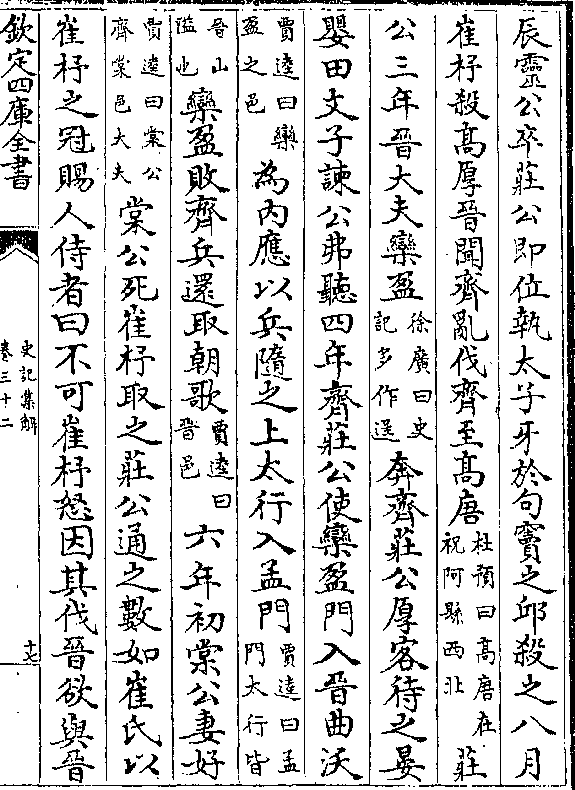 辰靈公卒莊公即位執太子牙於句竇之邱殺之八月
崔杼殺髙厚晉聞齊亂伐齊至髙唐杜預曰髙唐在祝阿縣西北莊
公三年晉大夫欒盈徐廣曰史記多作逞奔齊莊公厚客待之晏
嬰田文子諫公弗聽四年齊莊公使欒盈門入晉曲沃
賈逵曰欒盈之邑為内應以兵隨之上太行入孟門賈逵曰孟門太行皆
晉山隘也欒盈敗齊兵還取朝歌賈逵曰晉邑六年初棠公妻好
賈逵曰棠公齊棠邑大夫棠公死崔杼取之莊公通之數如崔氏以
崔杼之冠賜人侍者曰不可崔杼怒因其伐晉欲與晉
欽定四庫全書
史記集解
卷三十二
十七